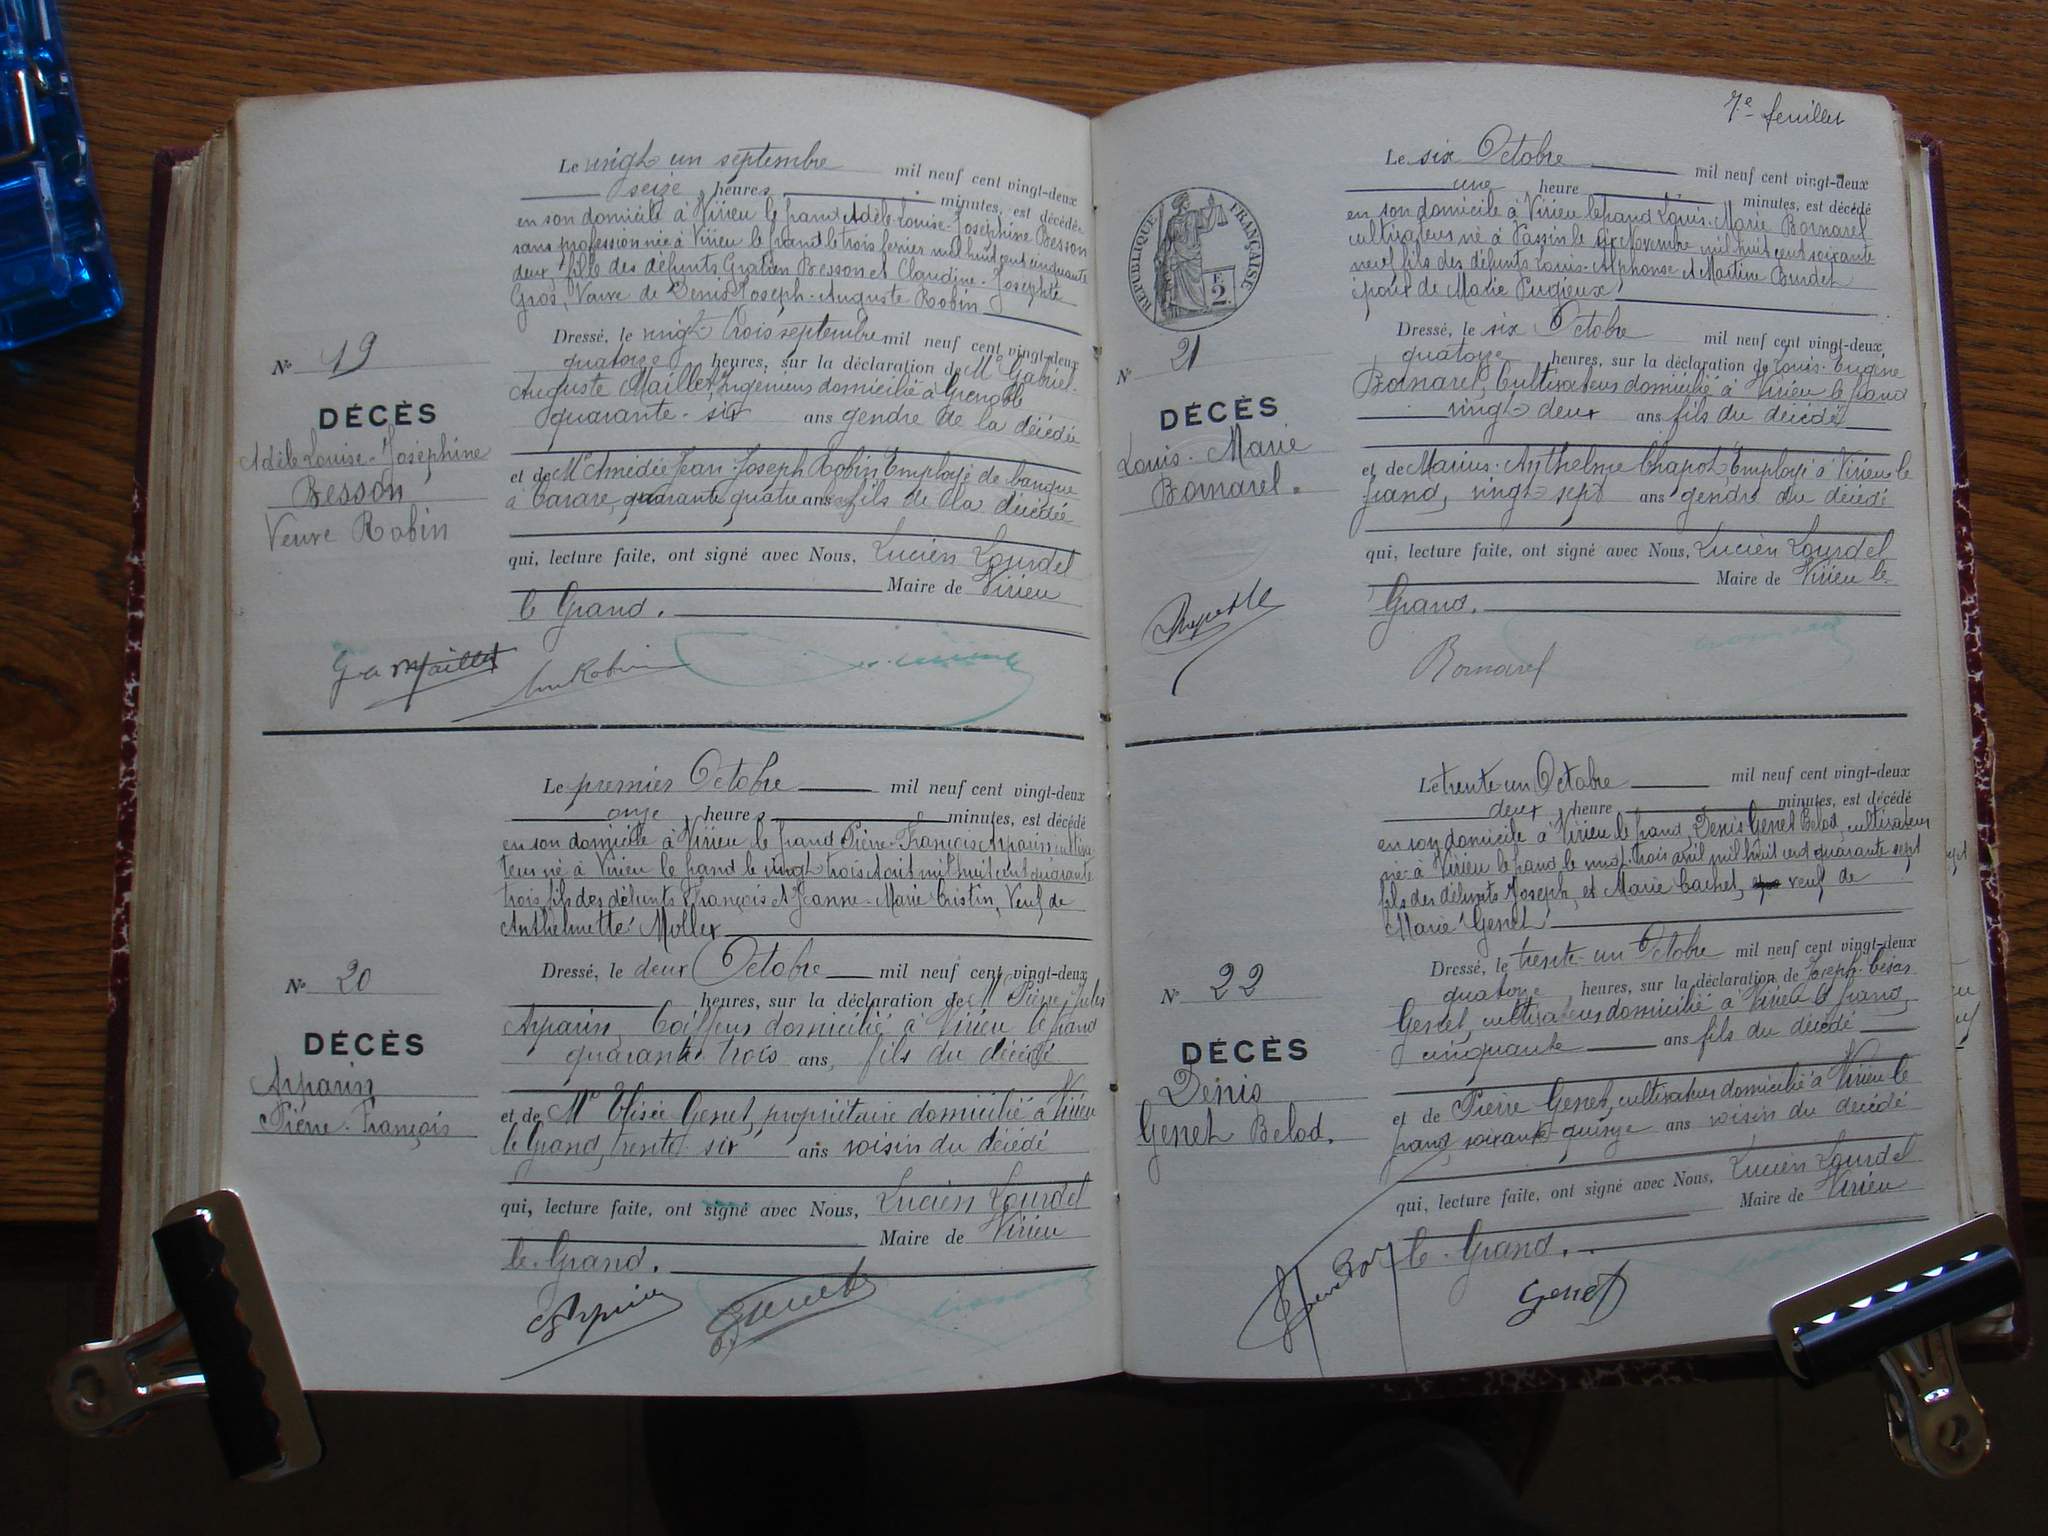 Le vingt un septembre mil neuf cent vingt-deux
seize heures minutes, est décédée
en son domicile à Virieu le grand Adèle-Louise-Joséphine Besson
sans profession née à Virieu le grand le trois février mil huit cent cinquante
deux, fille des défunts Gratien Besson et Claudine-Josephte
Gros, Veuve de Denis Joseph-Auguste Robin
Dressé, le vingt trois septembre mil neuf cent vingt-deux
quatorze heures, sur la déclaration de Mr Gabriel-
Auguste Maillet, Ingénieur domicilié à Grenoble
quarante-six ans gendre de la décédée
et de Mr Amédée Jean-Joseph Robin Employé de banque
à Tarare, quarante quatre ans fils de la décédée
qui, lecture faite, ont signé avec Nous, Lucien Lourdel
Maire de Virieu
le Grand.
N° 19
DÉCÈS
Adèle Louise-Joséphine
Besson
Veuve Robin
G a Maillet
Robin
Le premier Octobre mil neuf cent vingt-deux
onze heures minutes, est décédé
en son domicile à Virieu le grand Pierre-François Arparin cultiva-
teur né à Virieu le grand le vingt trois Août mil huit cent quarante
trois, fils des défunts François et Jeanne-Marie Cristin, Veuf de
Anthelmette Mollex
Dressé, le deux Octobre mil neuf cent vingt-deux
heures, sur la déclaration de M Pierre Jules
Arparin, Coiffeur domicilié à Virieu le grand
quarante trois ans, fils du décédé
et de Mr Elisée Genet, propriétaire domicilié à Virieu
le Grand, trente six ans voisin du décédé
qui, lecture faite, ont signé avec Nous, Lucien Lourdel
Maire de Virieu
le Grand.
N° 20
DÉCÈS
Arparin
Pierre-François
Genet
7e feuillet
RÉPUBLIQUE FRANÇAISE
F
2
Le six Octobre mil neuf cent vingt-deux
une heure minutes, est décédé
en son domicile à Virieu le grand Louis-Marie Bornarel
cultivateur né à Vassin le six Novembre mil huit cent soixante
neuf fils des défunts Louis-Alphonse et Martine Burdet
époux de Marie Pugieux
Dressé, le six Octobre mil neuf cent vingt-deux,
quatorze heures, sur la déclaration de Louis-Eugène
Bornarel, Cultivateur domicilié à Virieu le grand
vingt deux ans fils du décédé
et de Marius-Anthelme Chapot, Employé à Virieu le
grand, vingt sept ans gendre du décédé
qui, lecture faite, ont signé avec Nous, Lucien Lourdel
Maire de Virieu le
Grand.
N° 21
DÉCÈS
Louis-Marie
Bornarel.
Bornarel
Le trente un Octobre mil neuf cent vingt-deux
deux heure minutes, est décédé
en son domicile à Virieu le grand, Denis Genet Belod, cultivateur
né à Virieu le grand le vingt trois avril mil huit cent quarante sept
fils des défunts Joseph, et Marie Cachet, veuf de
Marie Genet
Dressé, le trente-un Octobre mil neuf cent vingt-deux
quatorze heures, sur la déclaration de Joseph-César
Genet, cultivateur domicilié à Virieu le grand,
cinquante ans fils du décédé
et de Pierre Genet, cultivateur domicilié à Virieu le
grand, soixante-quinze ans voisin du décédé
qui, lecture faite, ont signé avec Nous, Lucien Lourdel
Maire de Virieu
le-Grand.
N° 22
DÉCÈS
Denis
Genet Belod.
Genet